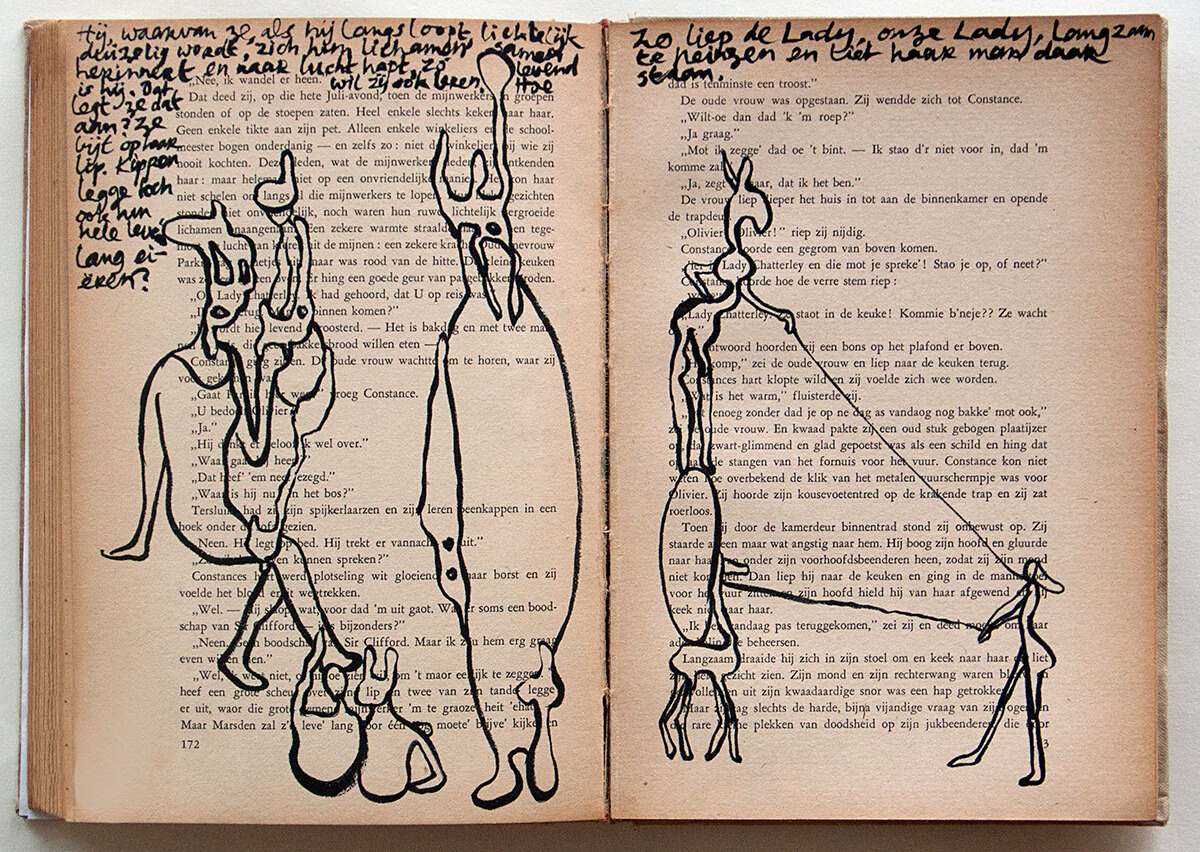 Hij, waarvan ze, als hij langsloopt, lichtelijk
duizelig wordt, zich hun lichamen samen
herinnert en naar lucht hapt, zo levend
is hij. Dat wil zij ook leren. Hoe
legt ze dat
aan? Ze
bijt op haar
lip. Kippen
legge toch
ook hun
hele leve
lang ei-
eren?
„Nee, ik wandel er heen.
Dat deed zij, op die hete Juli-avond, toen de mijnwerkers in groepen
stonden of op de stoepen zaten. Heel enkele slechts keken naar haar.
Geen enkele tikte aan zijn pet. Alleen enkele winkeliers en de school-
meester bogen onderdanig — en zelfs zo: niet de winkeliers bij wie zij
nooit kochten. Deze leden, wat de mijnwerkers leden ontkenden
haar: maar helemaal niet op een onvriendelijke manier. Het kon haar
niet schelen om langs die mijnwerkers te lopen gezichten
stonden niet onvriendelijk, noch waren hun ruwe, lichtelijk vergroeide
lichamen onaangenaam. Een zekere warmte straalde tege-
lucht van kleren uit de mijnen: een zekere kracht. oude mevrouw
Park netjes maar was rood van de hitte. De kleine keuken
was Er hing een goede geur van pas gebakken broden.
„O, Lady Chatterley, ik had gehoord, dat U op reis was.”
terug. binnen komen?”
wordt hier levend geroosterd. — Het is bakdag en met twee man
die gebakken brood willen eten —
Constance ging zitten. De oude vrouw wachtte om te horen, waar zij
voor gekomen was.
„Gaat hier weg?” vroeg Constance.
„U bedoelt Olivier?”
„Ja.”
„Hij denkt er geloof ik wel over.”
„Waar gaat hij heen?”
„Dat heef' 'em neet gezegd.”
„Waar is hij nu? In het bos?”
Tersluiks had zij zijn spijkerlaarzen en zijn leren beenkappen in een
hoek onder de sofa gezien.
„Neen. Hij legt op bed. Hij trekt er vannacht uit.”
en kunnen spreken?”
Constances hart werd plotseling wit gloeiend in haar borst en zij
voelde het bloed er uit wegtrekken.
„Wel. — Hij slaopt wat, voor dad 'm uit gaot. Was er soms een bood-
schap van Sir Clifford — iets bijzonders?”
„Neen. Geen boodschap van Sir Clifford. Maar ik zou hem erg graag
even willen zien.”
„Wel, niet, om 't maor eelijk te zegge,
heef een grote scheur over zijn lip en twee van z'n tande legge
er uit, waor die grote mijnwerker 'm te graoze heit 'ehad.
Maar Marsden zal z'n leve' lang voor één oog moete' blijve' kijken
172
Zo liep de Lady, onze Lady, langzaam
te peinzen en liet haar man daar
staan.
dad is tenminste een troost.”
De oude vrouw was opgestaan. Zij wendde zich tot Constance.
„Wilt-oe dan dad 'k 'm roep?”
„Ja graag.”
„Mot ik zegge' dad oe 't bint. — Ik stao d'r niet voor in, dad 'm
komme zal.”
„Ja, zegt maar, dat ik het ben.”
De vrouw liep dieper het huis in tot aan de binnenkamer en opende
de trapdeur.
„Olivier! Olivier!” riep zij nijdig.
Constance hoorde een gegrom van boven komen.
„Hier is Lady Chatterley en die mot je spreke'! Stao je op, of neet?”
Constance hoorde hoe de verre stem riep:
„Lady Chatterley. Ze staot in de keuke! Kommie b'neje?? Ze wacht
antwoord hoorden zij een bons op het plafond er boven.
komp,” zei de oude vrouw en liep naar de keuken terug.
Constances hart klopte wild en zij voelde zich wee worden.
„Wat is het warm,” fluisterde zij.
genoeg zonder dad je op ne dag as vandaog nog bakke' mot ook,”
zei de oude vrouw. En kwaad pakte zij een oud stuk gebogen plaatijzer
op, dat zwart-glimmend en glad gepoetst was als een schild en hing dat
op aan de stangen van het fornuis voor het vuur. Constance kon niet
weten hoe overbekend de klik van het metalen vuurschermpje was voor
Olivier. Zij hoorde zijn kousevoetentred op de krakende trap en zij zat
roerloos.
Toen hij door de kamerdeur binnentrad stond zij onbewust op. Zij
staarde alleen maar wat angstig naar hem. Hij boog zijn hoofd en gluurde
naar haar van onder zijn voorhoofdsbeenderen heen, zodat zij zijn mond
niet kon zien. Dan liep hij naar de keuken en ging in de mand
voor het vuur zitten en zijn hoofd hield hij van haar afgewend en hij
keek niet naar haar.
„Ik ben vandaag pas teruggekomen,” zei zij en deed moeite om haar
ademhaling te beheersen.
Langzaam draaide hij zich in zijn stoel om en keek naar haar en liet
gezicht zien. Zijn mond en zijn rechterwang waren
gezwollen en uit zijn kwaadaardige snor was een hap getrokken.
Maar zij zag slechts de harde, bijna vijandige vraag van zijn ogen
de rare kleine plekken van doodsheid op zijn jukbeenderen, die door